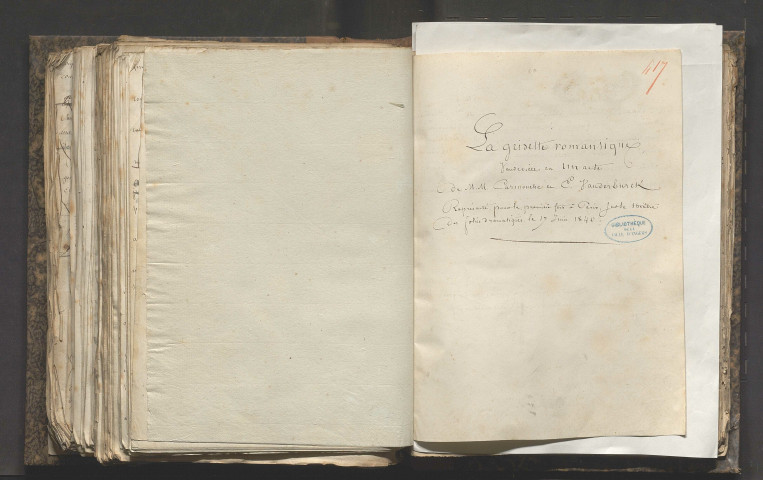 417
La grisette romantique
Vaudeville en un acte
de MM Carmouche et E. Vanderburck
Représenté pour la première fois à Paris, sur le théâtre
des folies dramatiques le 17 1840
BIBLIOTHÈQUE
DE LA
VILLE D'ANGERS